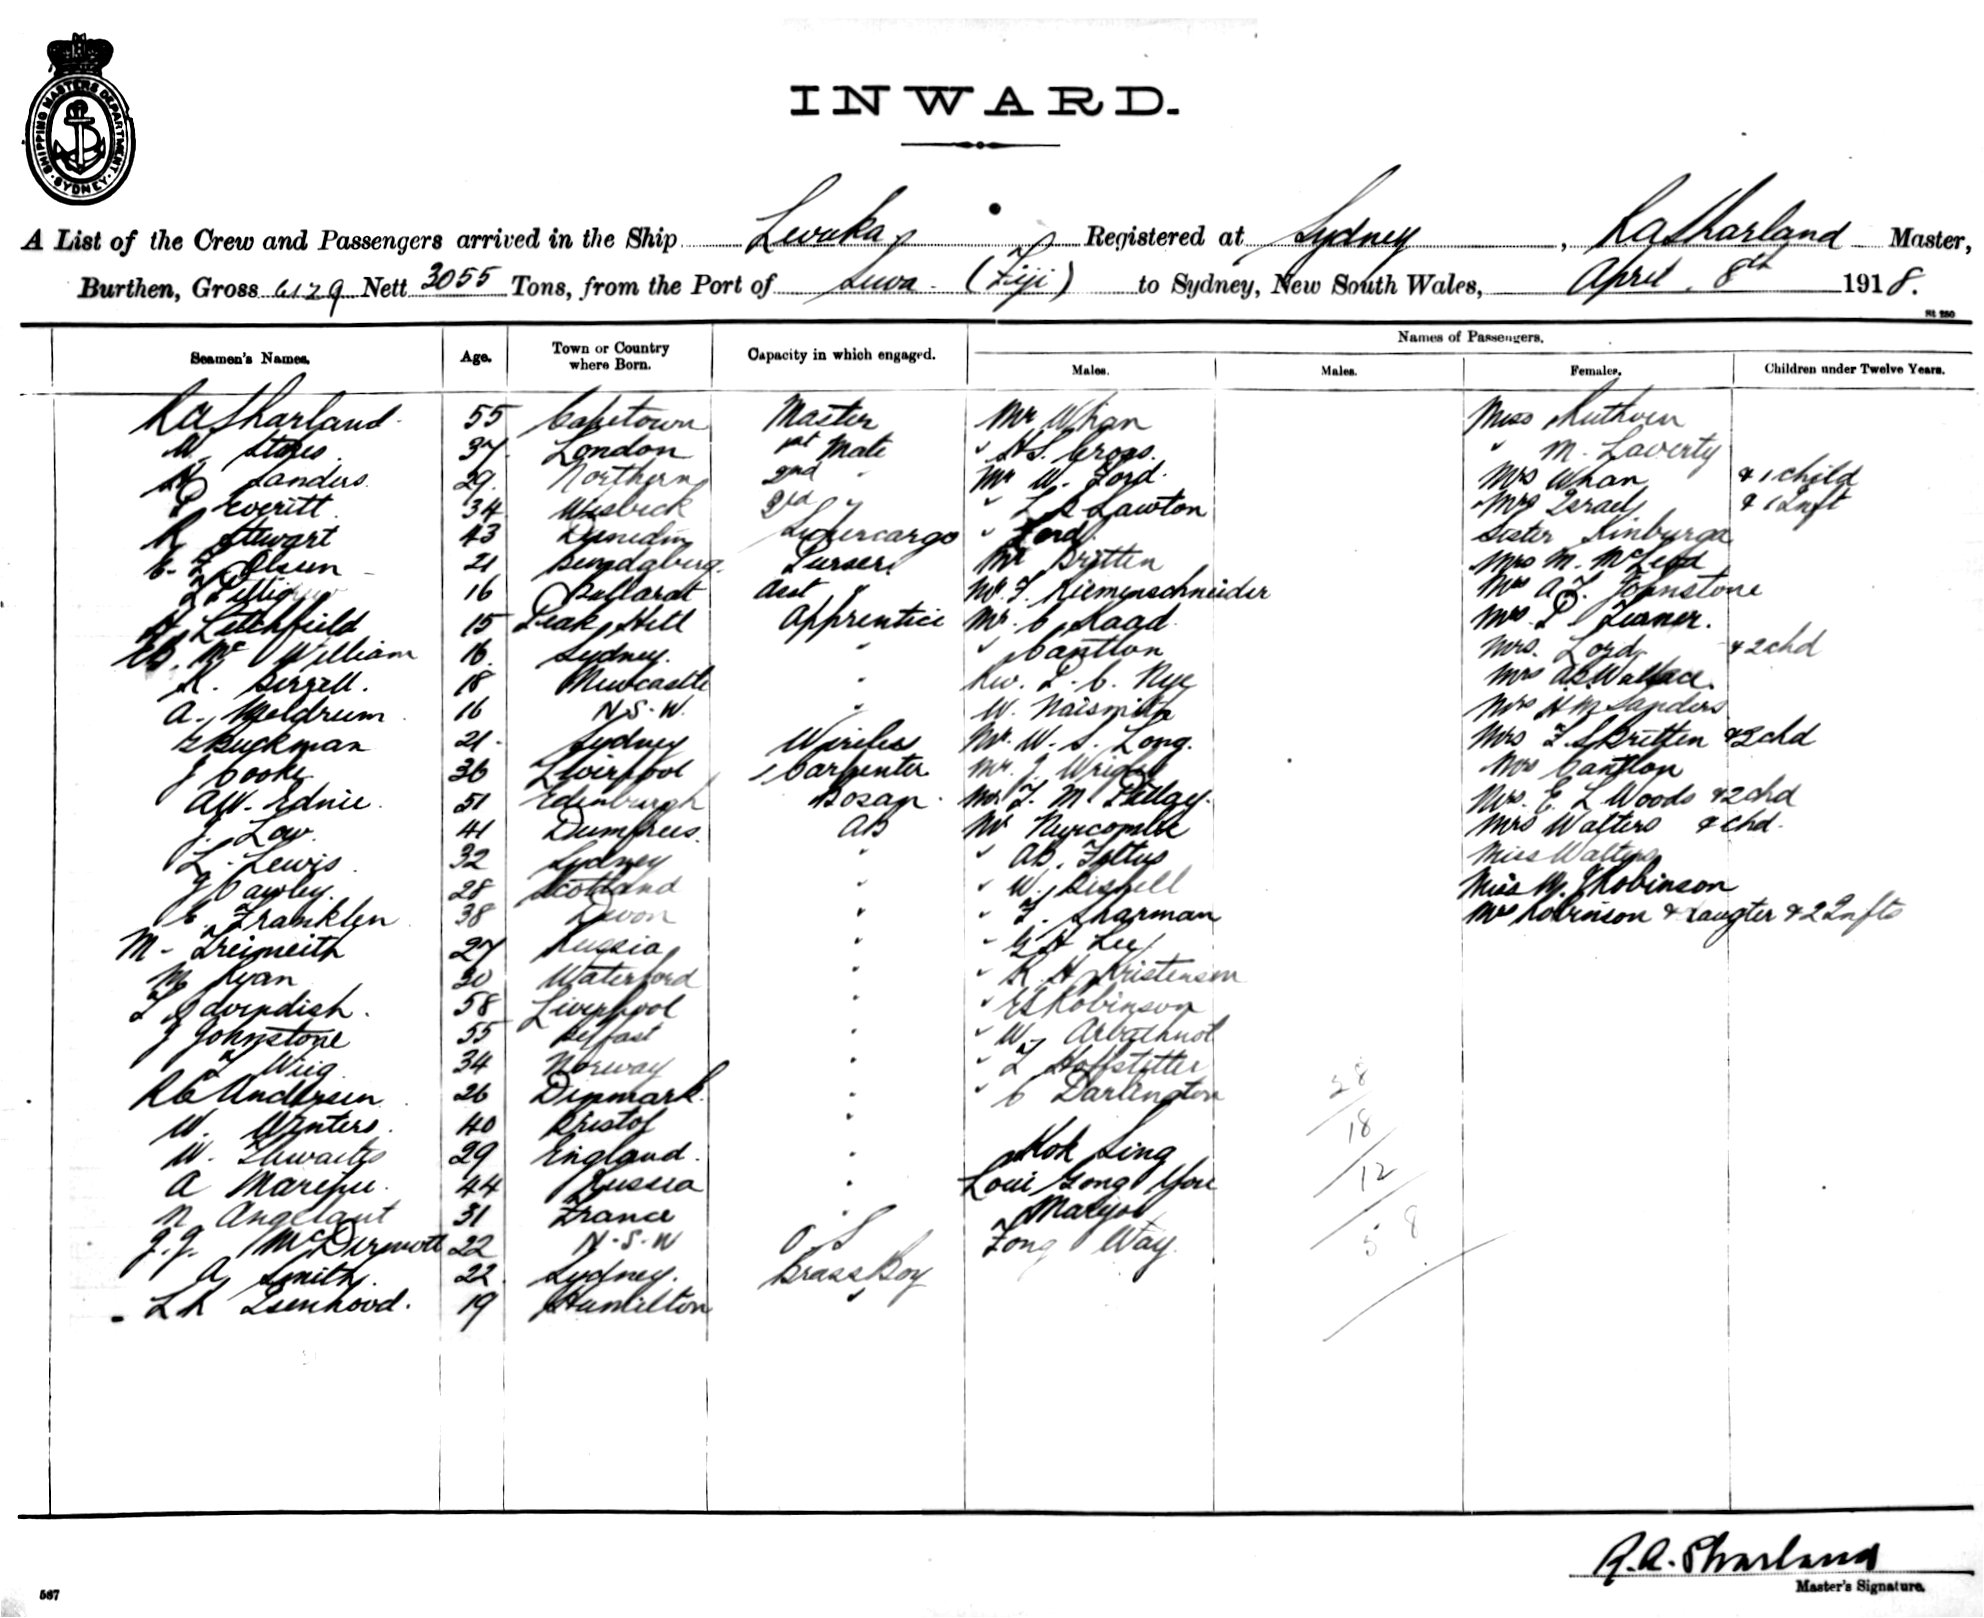 SHIPPING MASTERS DEPARTMENT. SYDNEY.
INWARD.
A List of the Crew and Passengers arrived in the Ship Levuka Registered at Sydney, RASharland Master,
Burthen, Gross 6129 Nett 3055 Tons, from the Port of Suva (Fiji) to Sydney, New South Wales, April 8th 1918.
Names of Passengers.
Seamen's Names. Age. Town or Country where Born. Capacity in which engaged. Males. Males. Females. Children under Twelve Years.
RASharland 55 Capetown Master Mr Whan Miss Ruthven
W. Stokes 37 London 1st Mate " H.S. Cross. " M. Laverty
Sanders 29. Northern 2nd " Mr W. Ford. Mrs Whan & 1 child
P Everitt. 34 Wisbeck 3rd " " Lawton Mrs Israel & 1 Inft
R Stewart 43 Dunedin Supercargo " Lord Sister Kinburga
E. Olsen 21 Bundaberg. Purser. Mr Britten Mrs M. McLeod
16 Ballarat Asst " Mr. F. Riemenschneider Mrs A. F. Johnstone
H. Litchfield 15 Peak Hill Apprentice Mr. C Raad Mrs. P Turner.
McWilliam 16. Sydney. " " Cantlon Mrs. Lord & 2 chd
R. Birrell. 18 Newcastle " Rev. P. C. Nye Mrs Wallace.
A. Meldrum 16 N.S.W. " W. Naismith Mrs H M Sanders
Buckman 21. Sydney Wireless Mr. W. S. Long. Mrs F. S Britten & 2 chd
J Cooke 36 Liverpool Carpenter Mr. J Wright Mrs Cantlon
AW. Ednie. 51 Edinburgh Bosan. Mr F. M Pillay. Mrs. E. L Woods & 2 chd
J. Low. 41 Dumfries. AB Mr Newcombe Mrs Walters & chd.
L. Lewis. 32 Sydney " " AB. Miss Walters
J Cawley. 28 Scotland " " W. Bisgell Miss M. J Robinson
C Franklen 38 Devon " " F. Sharman Mrs Robinson & Daugter & 2 Infts
M. Treimeith 27 Russia " " Lee
M Ryan 30 Waterford " " R H Kristensen
Cavendish. 58 Liverpool " " ES Robinson
J Johnstone 55 Belfast " " W. Arbuthnot
Wiig 34 Norway " " F Hoffstetter
R C Andersen 26 Denmark. " " C Darlington
W. Winters. 40 Bristol "
W. Thwaites 29 England. " Hok Sing
A 44 Russia " Loui Gong You
N Angelaut 31 France " Maryo
J. J. McDermott 22 N.S.W O S Fong Way
A Smith. 22 Sydney. Brass Boy
L R Isenhood. 19 Hamilton "
28
18
12
58
R.A. Sharland
Master's Signature.
567